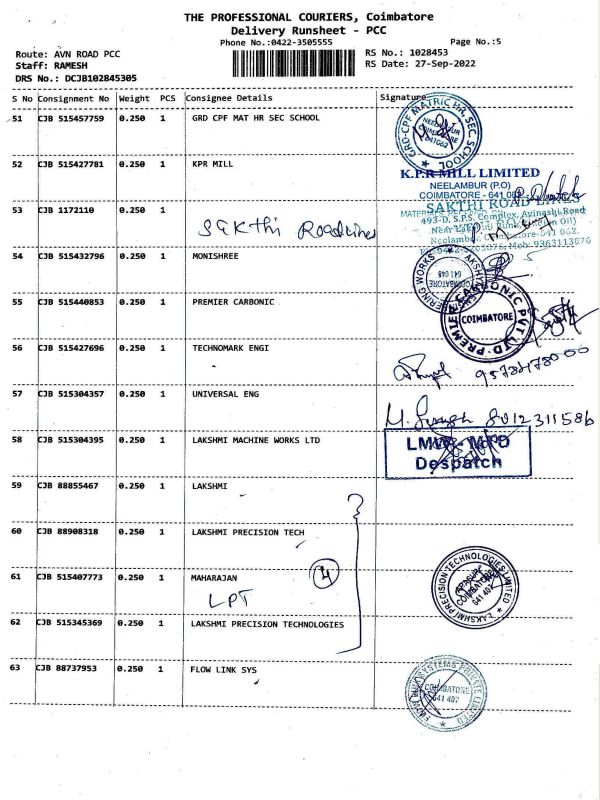 THE PROFESSIONAL COURIERS, Coimbatore
Delivery Runsheet - PCC
Phone No.:0422-3505555 Page No.:5
Route: AVN ROAD PCC RS No.: 1028453
Staff: RAMESH RS Date: 27-Sep-2022
DRS No.: DCJB102845305
S No Consignment No Weight PCS Consignee Details Signature
51 CJB 515457759 0.250 1 GRD CPF MAT HR SEC SCHOOL
GRD-CPF MATRIC HR. SEC. SCHOOL
NEELAMBUR
COIMBATORE
641062
52 CJB 515427781 0.250 1 KPR MILL
K.P.R MILL LIMITED
NEELAMBUR (P.O)
COIMBATORE - 641 062
53 CJB 1172110 0.250 1
Sakthi Roadlines
SAKTHI ROAD LINES
493-D, S.P.S. Complex, Avinashi Road
54 CJB 515432796 0.250 1 MONISHREE
COIMBATORE
641 048
55 CJB 515440853 0.250 1 PREMIER CARBONIC
PREMIER CARBONIC PVT LTD
COIMBATORE
56 CJB 515427696 0.250 1 TECHNOMARK ENGI
57 CJB 515304357 0.250 1 UNIVERSAL ENG
8012311586
58 CJB 515304395 0.250 1 LAKSHMI MACHINE WORKS LTD
LMW - MPD
Despatch
59 CJB 88855467 0.250 1 LAKSHMI
60 CJB 88908318 0.250 1 LAKSHMI PRECISION TECH
4
61 CJB 515407773 0.250 1 MAHARAJAN
LPT
LAKSHMI PRECISION TECHNOLOGIES LIMITED
641 407
62 CJB 515345369 0.250 1 LAKSHMI PRECISION TECHNOLOGIES
63 CJB 88737953 0.250 1 FLOW LINK SYS
COIMBATORE
641 407